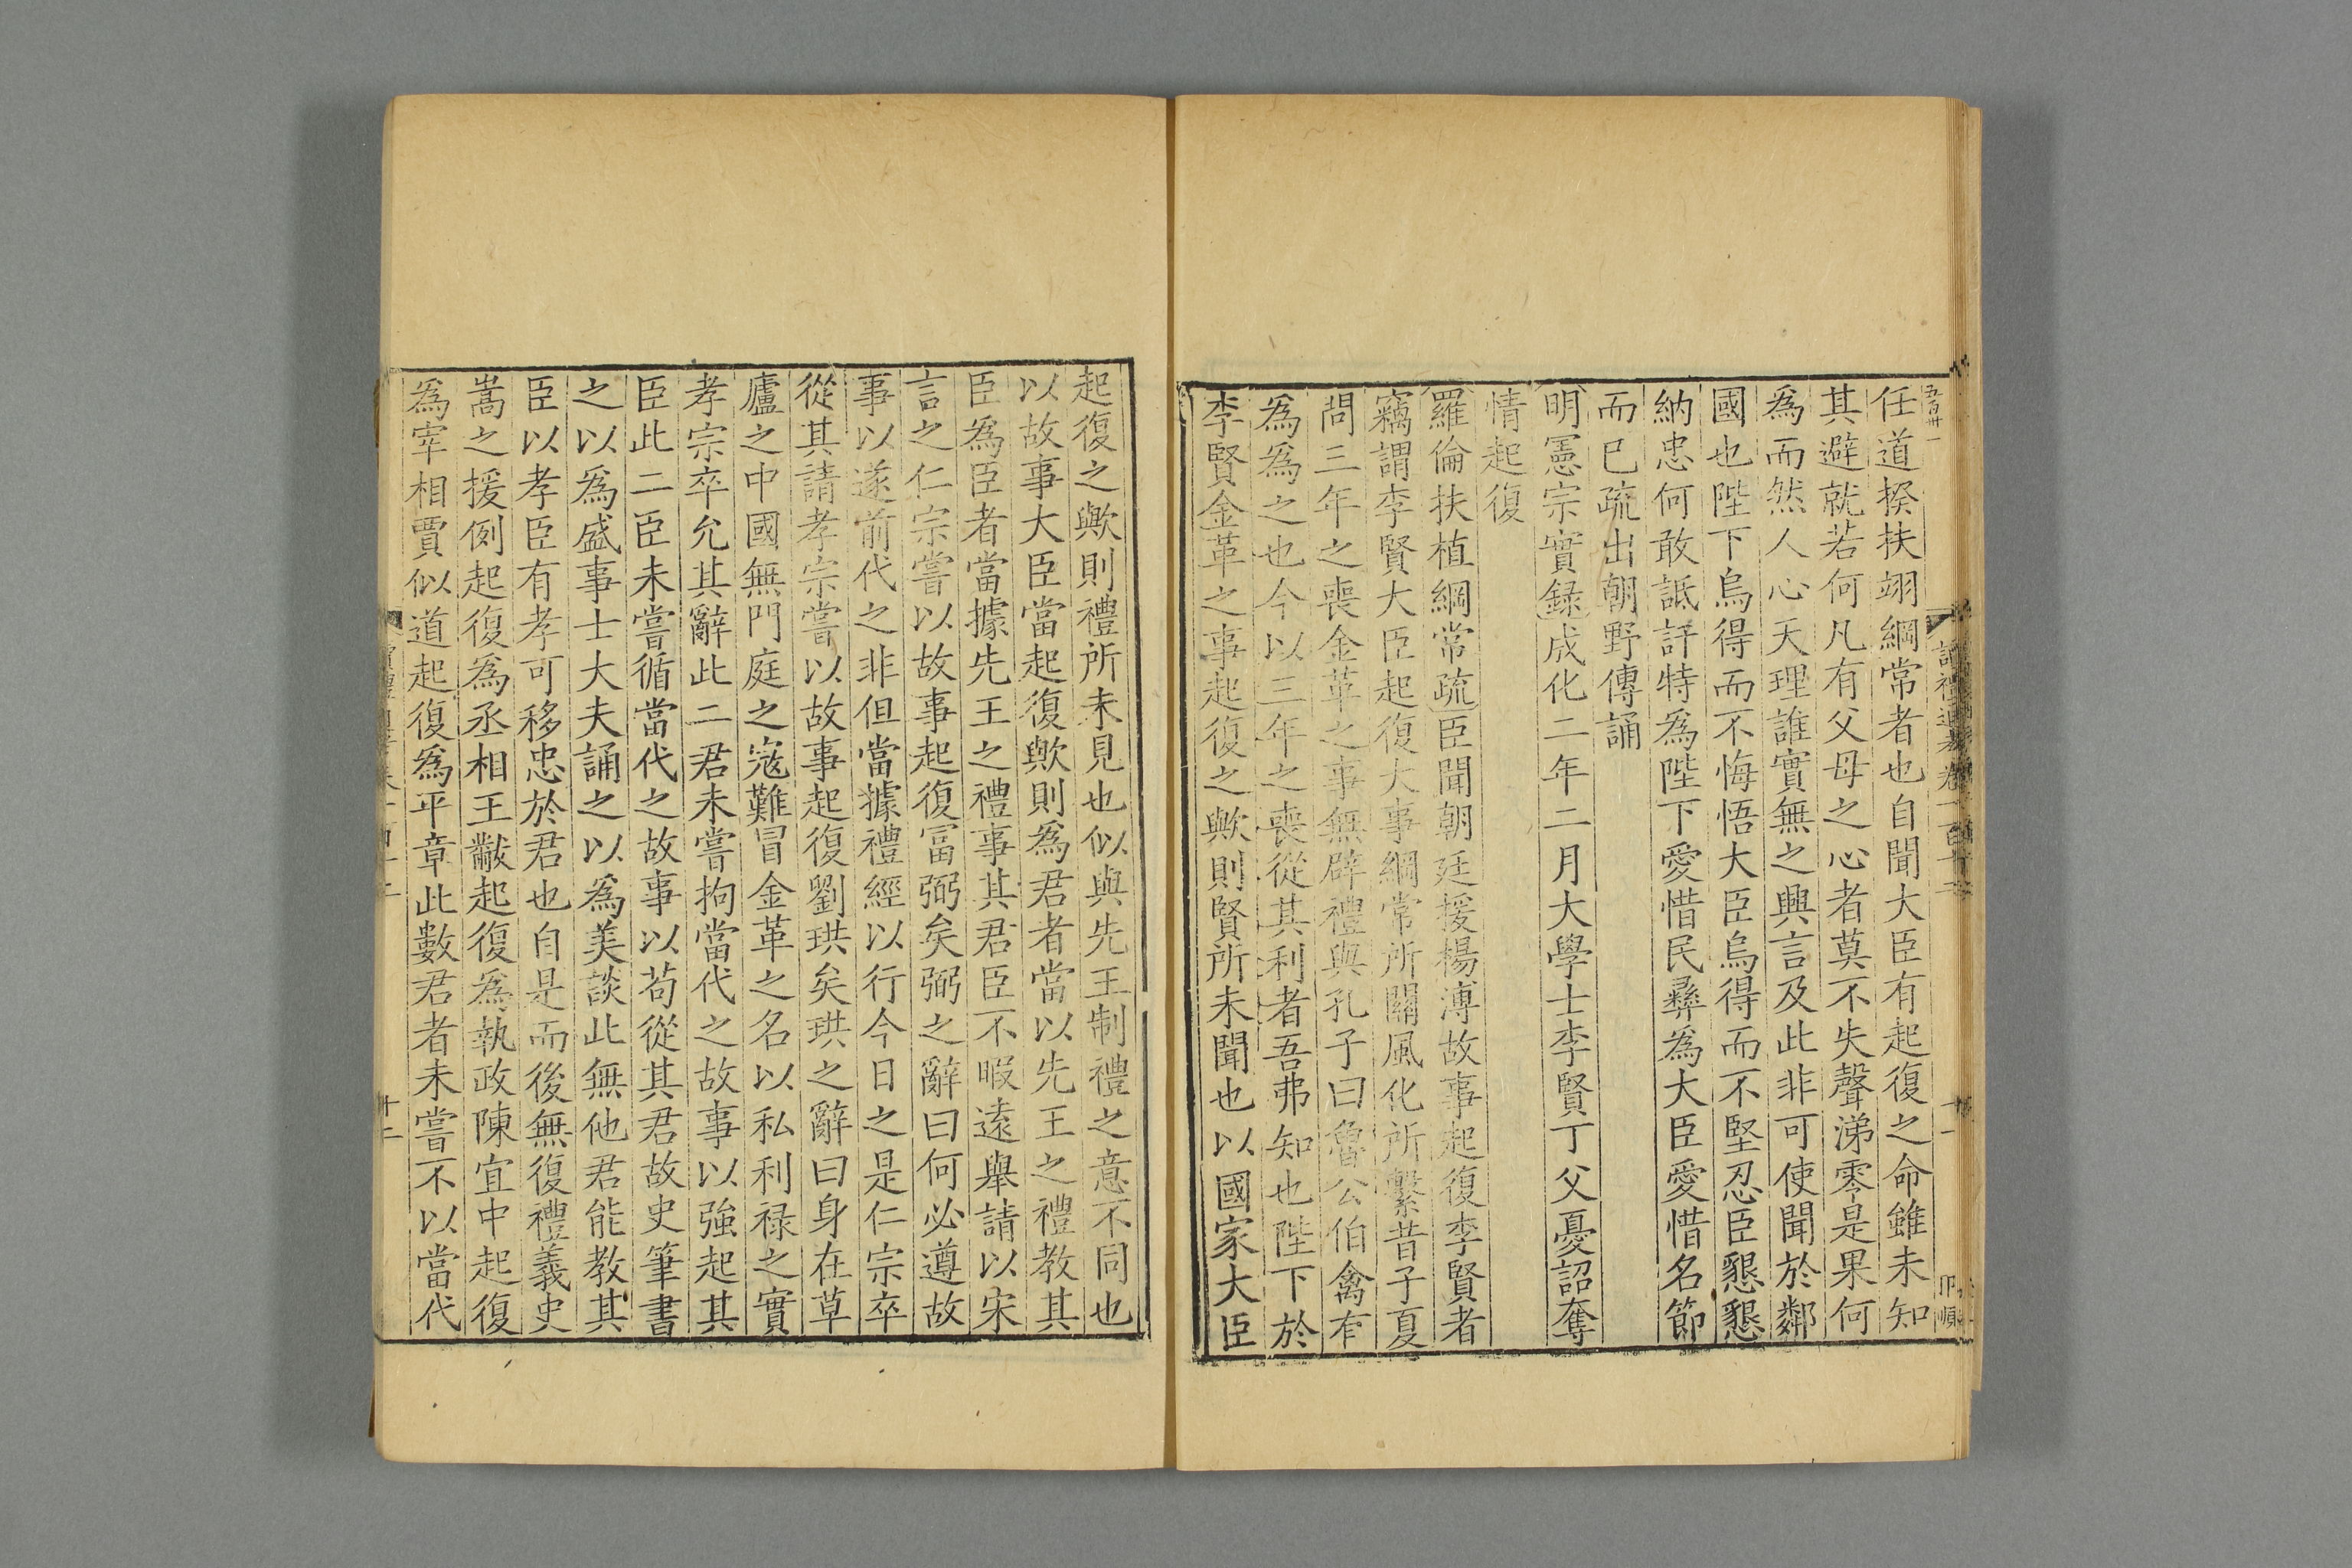 五百卅一
任道揆扶翊綱常者也自聞大臣有起復之命雖未知
其避就若何凡有父母之心者莫不失聲涕零是果何
為而然人心天理誰實無之興言及此非可使聞於鄰
國也陛下烏得而不悔悟大臣烏得而不堅忍臣懇懇
納忠何敢詆訐特為陛下愛惜民彝為大臣愛惜名節
而已疏出朝野傳誦
明憲宗實録成化二年二月大學士李賢丁父憂詔奪
情起復
羅倫扶植綱常疏臣聞朝廷援楊溥故事起復李賢者
竊謂李賢大臣起復大事綱常所關風化所繫昔子夏
問三年之喪金革之事無辟禮與孔子曰魯公伯禽有
為為之也今以三年之喪從其利者吾弗知也陛下於
李賢金革之事起復之歟則賢所未聞也以國家大臣
起復之歟則禮所未見也似與先王制禮之意不同也
以故事大臣當起復歟則為君者當以先王之禮教其
臣為臣者當據先王之禮事其君臣不暇遠舉請以宋
言之仁宗嘗以故事起復富弼矣弼之辭曰何必遵故
事以遂前代之非但當據禮經以行今日之是仁宗卒
從其請孝宗嘗以故事起復劉珙矣珙之辭曰身在草
廬之中國無門庭之寇難冒金革之名以私利禄之實
孝宗卒允其辭此二君未嘗拘當代之故事以強起其
臣此二臣未嘗循當代之故事以苟從其君故史筆書
之以為盛事士大夫誦之以為美談此無他君能教其
臣以孝臣有孝可移忠於君也自是而後無復禮義史
嵩之援例起復為丞相王黻起復為執政陳宜中起復
為宰相賈似道起復為平章此數君者未嘗不以當代
十二